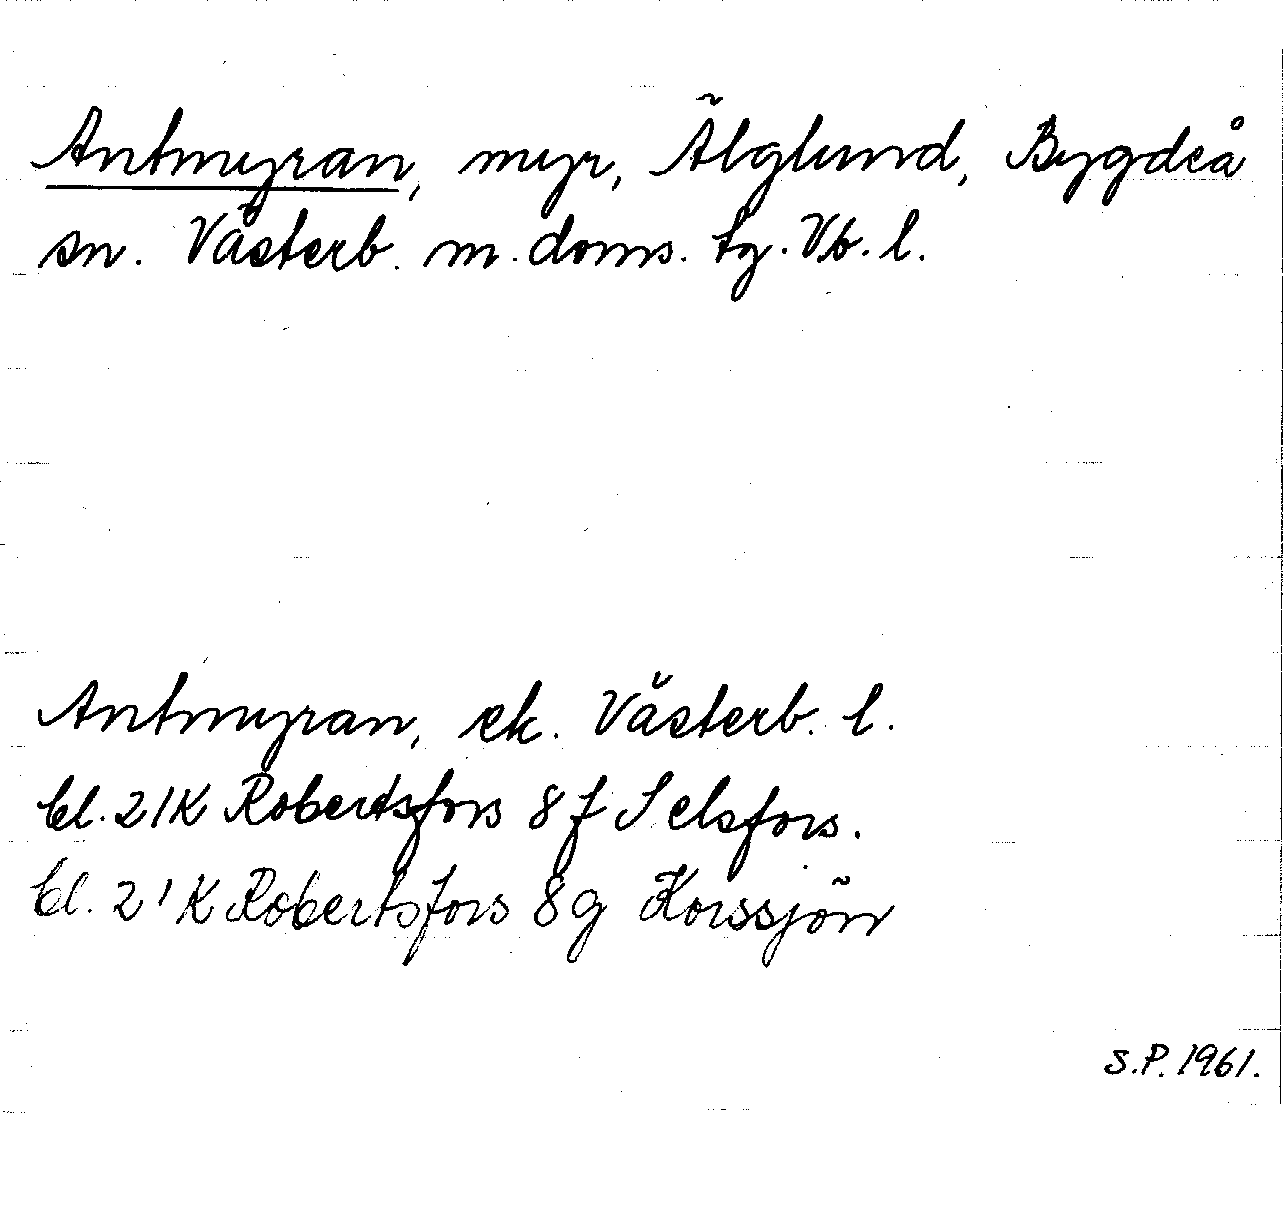 Antmyran, myr, Älglund, Bygdeå
sn. Västerb. m. doms. tg. Vb. l.
Antmyran, ek. Västerb. l.
bl. 21K Robertsfors 8f Selsfors.
bl. 21K Robertsfors 8g Korssjön
S.P. 1961.